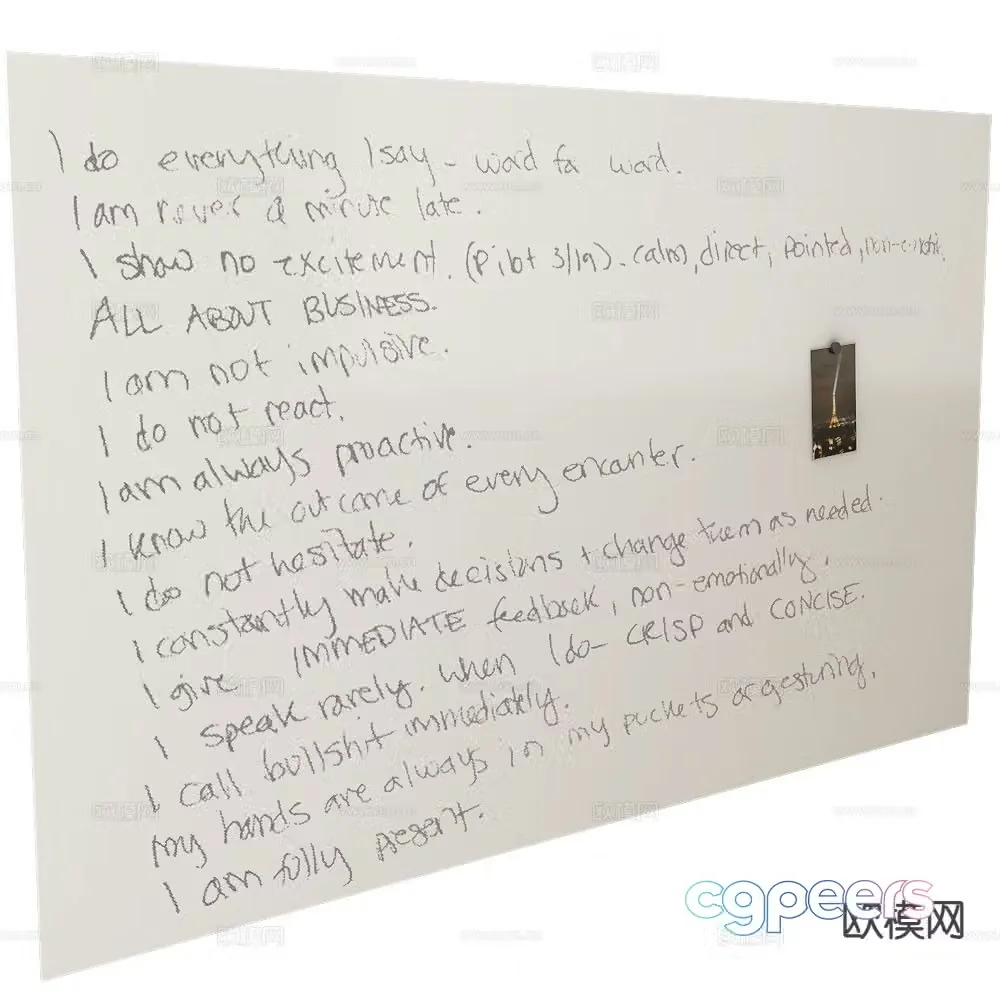 I do everything I say - word for word.
I am never a minute late.
I show no excitement. (Pilot 3/19). calm, direct, pointed, non-emotic.
ALL ABOUT BUSINESS.
I am not impulsive.
I do not react.
I am always proactive.
I know the outcome of every encounter.
I do not hesitate.
I constantly make decisions + change them as needed.
I give IMMEDIATE feedback, non-emotionally.
I speak rarely. When I do - CRISP and CONCISE.
I call bullshit immediately.
My hands are always in my pockets or gesturing.
I am fully present.
cgpeers
欧模网